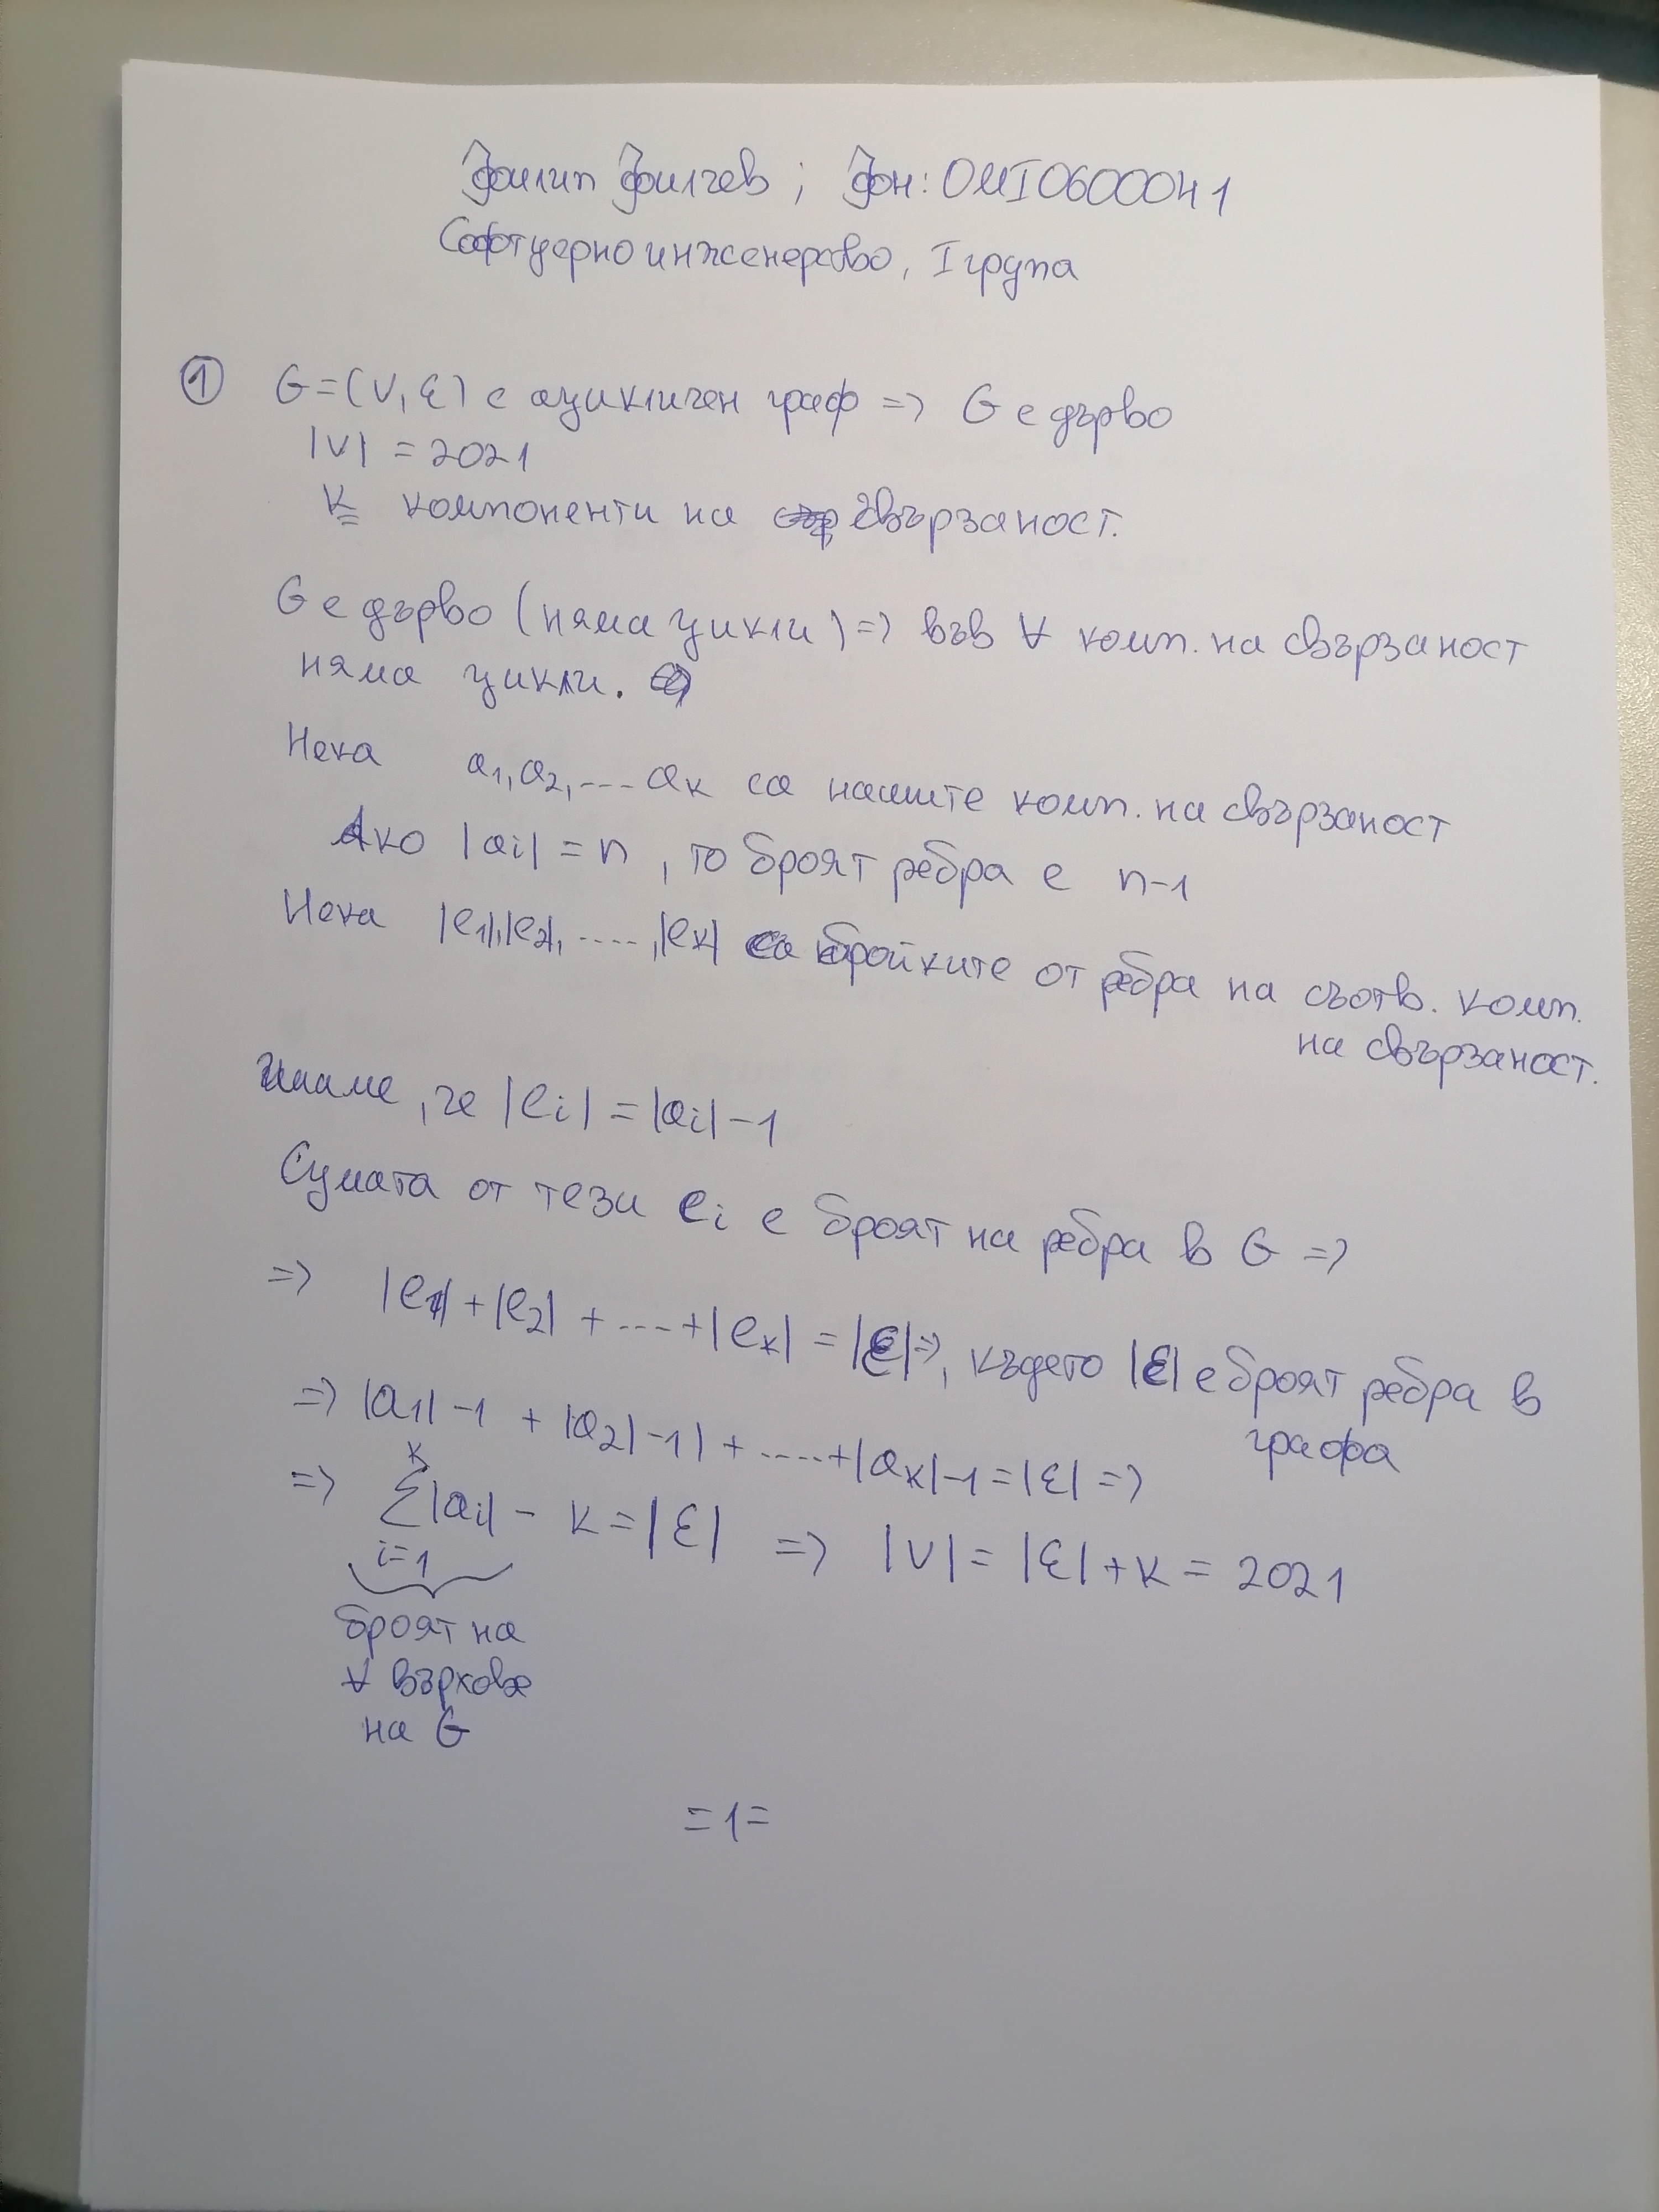 Филип Филчев; Фн: 0MI0600041
Софтуерно инженерство, I група
① G=(V, E) е ацикличен граф => G е дърво
|V| = 2021
k компоненти на свързаност.
G е дърво (няма цикли) => във ∀ комп. на свързаност
няма цикли.
Нека a1, a2, .... ak са нашите комп. на свързаност
Ако |ai| = n, то броят ребра е n-1
Нека |e1|, |e2|, ....., |ek| са бройките от ребра на съотв. комп.
на свързаност.
Имаме, че |ei| = |ai| - 1
Сумата от тези ei е броят на ребра в G =>
=> |e1| + |e2| + .... + |ek| = |E| =>, където |E| е броят ребра в
графа
=> |a1| -1 + |a2| -1) + ..... + |ak| -1 = |E| =>
=> k Σ i=1 |ai| - k = |E| => |V| = |E| + k = 2021
броят на
∀ върхове
на G
=1=